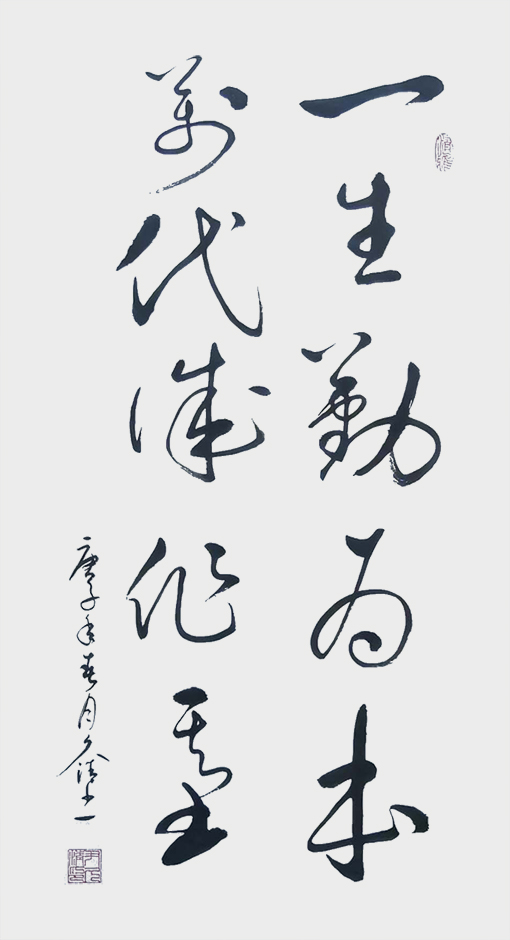 一生勤為本
萬代誠作基
庚子年春月